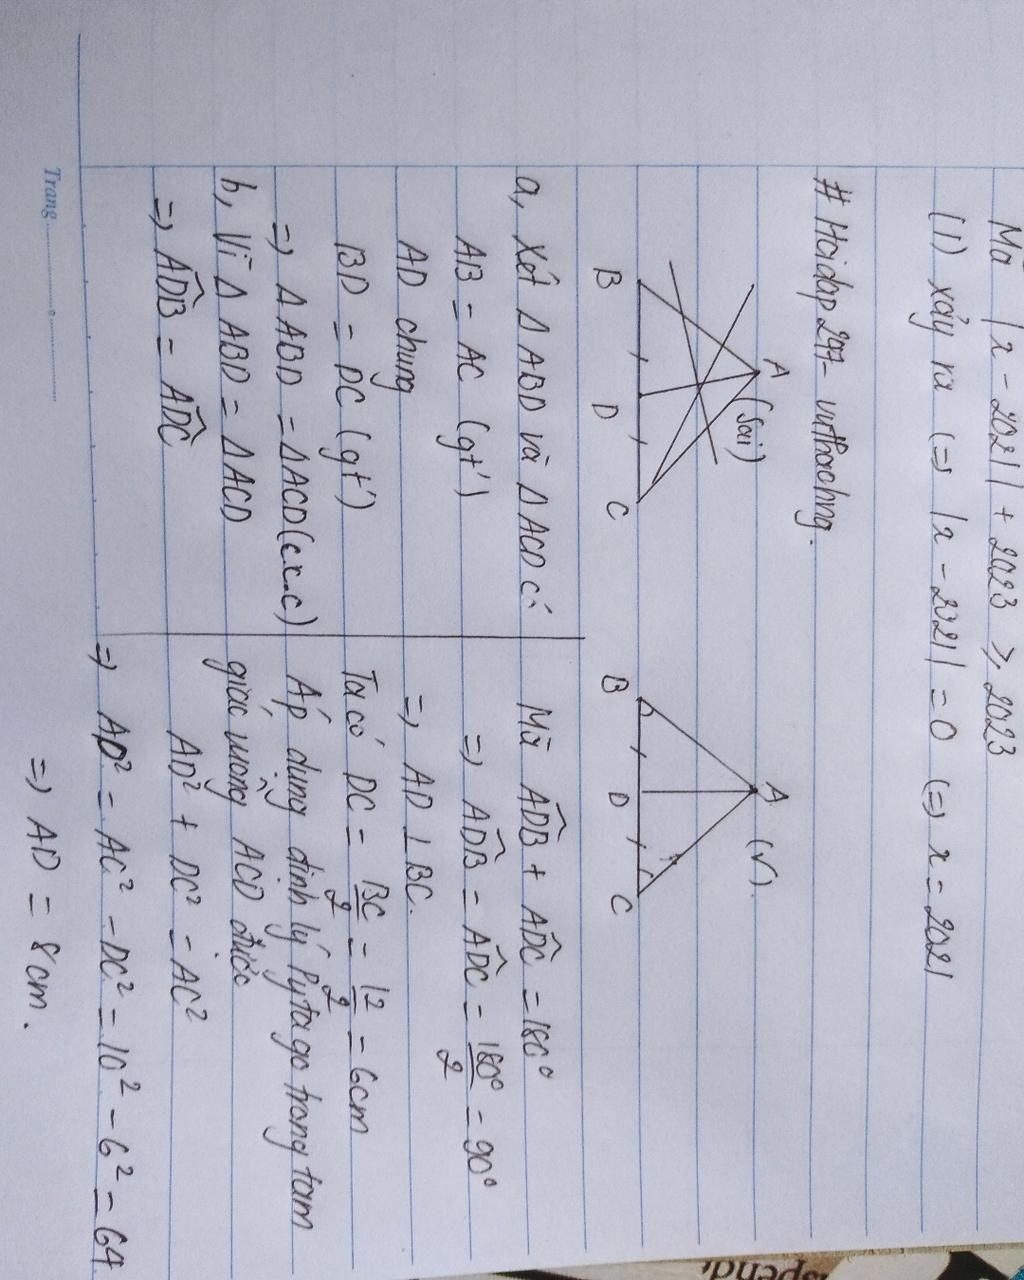 Mà |x - 2021| + 2023 ≥ 2023
(1) xảy ra (=) |x - 2021| = 0 (=) x = 2021
# Hoidap247-
A (Sai)
B D C
A (V).
B D C
a, Xét Δ ABD và Δ ACD có
AB = AC (gt)
AD chung
BD = DC (gt)
=) Δ ABD = Δ ACD (c.c.c)
b, Vì Δ ABD = Δ ACD
=) ADB̂ = ADĈ
Mà ADB̂ + ADĈ = 180°
=) ADB̂ = ADĈ = 180°/2 = 90°
=) AD ⊥ BC.
Ta có DC = BC/2 = 12/2 = 6cm
Áp dụng định lý Pytago trong tam
giác vuông ACD được
AD² + DC² = AC²
=) AD² = AC² - DC² = 10² - 6² = 64
=) AD = 8 cm.
Trang